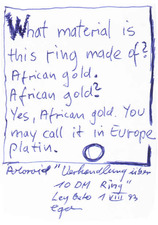 What material is
this ring made of?
African gold.
African gold?
Yes, African gold. You
may call it in Europe
Platin.
"Verhandlung über
10 DM Ring"
1 VIII 93